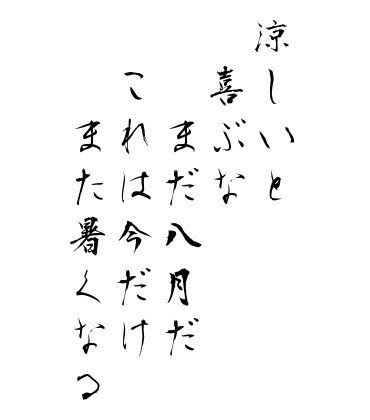 涼しいと
喜ぶな
まだ八月だ
これは今だけ
また暑くなる